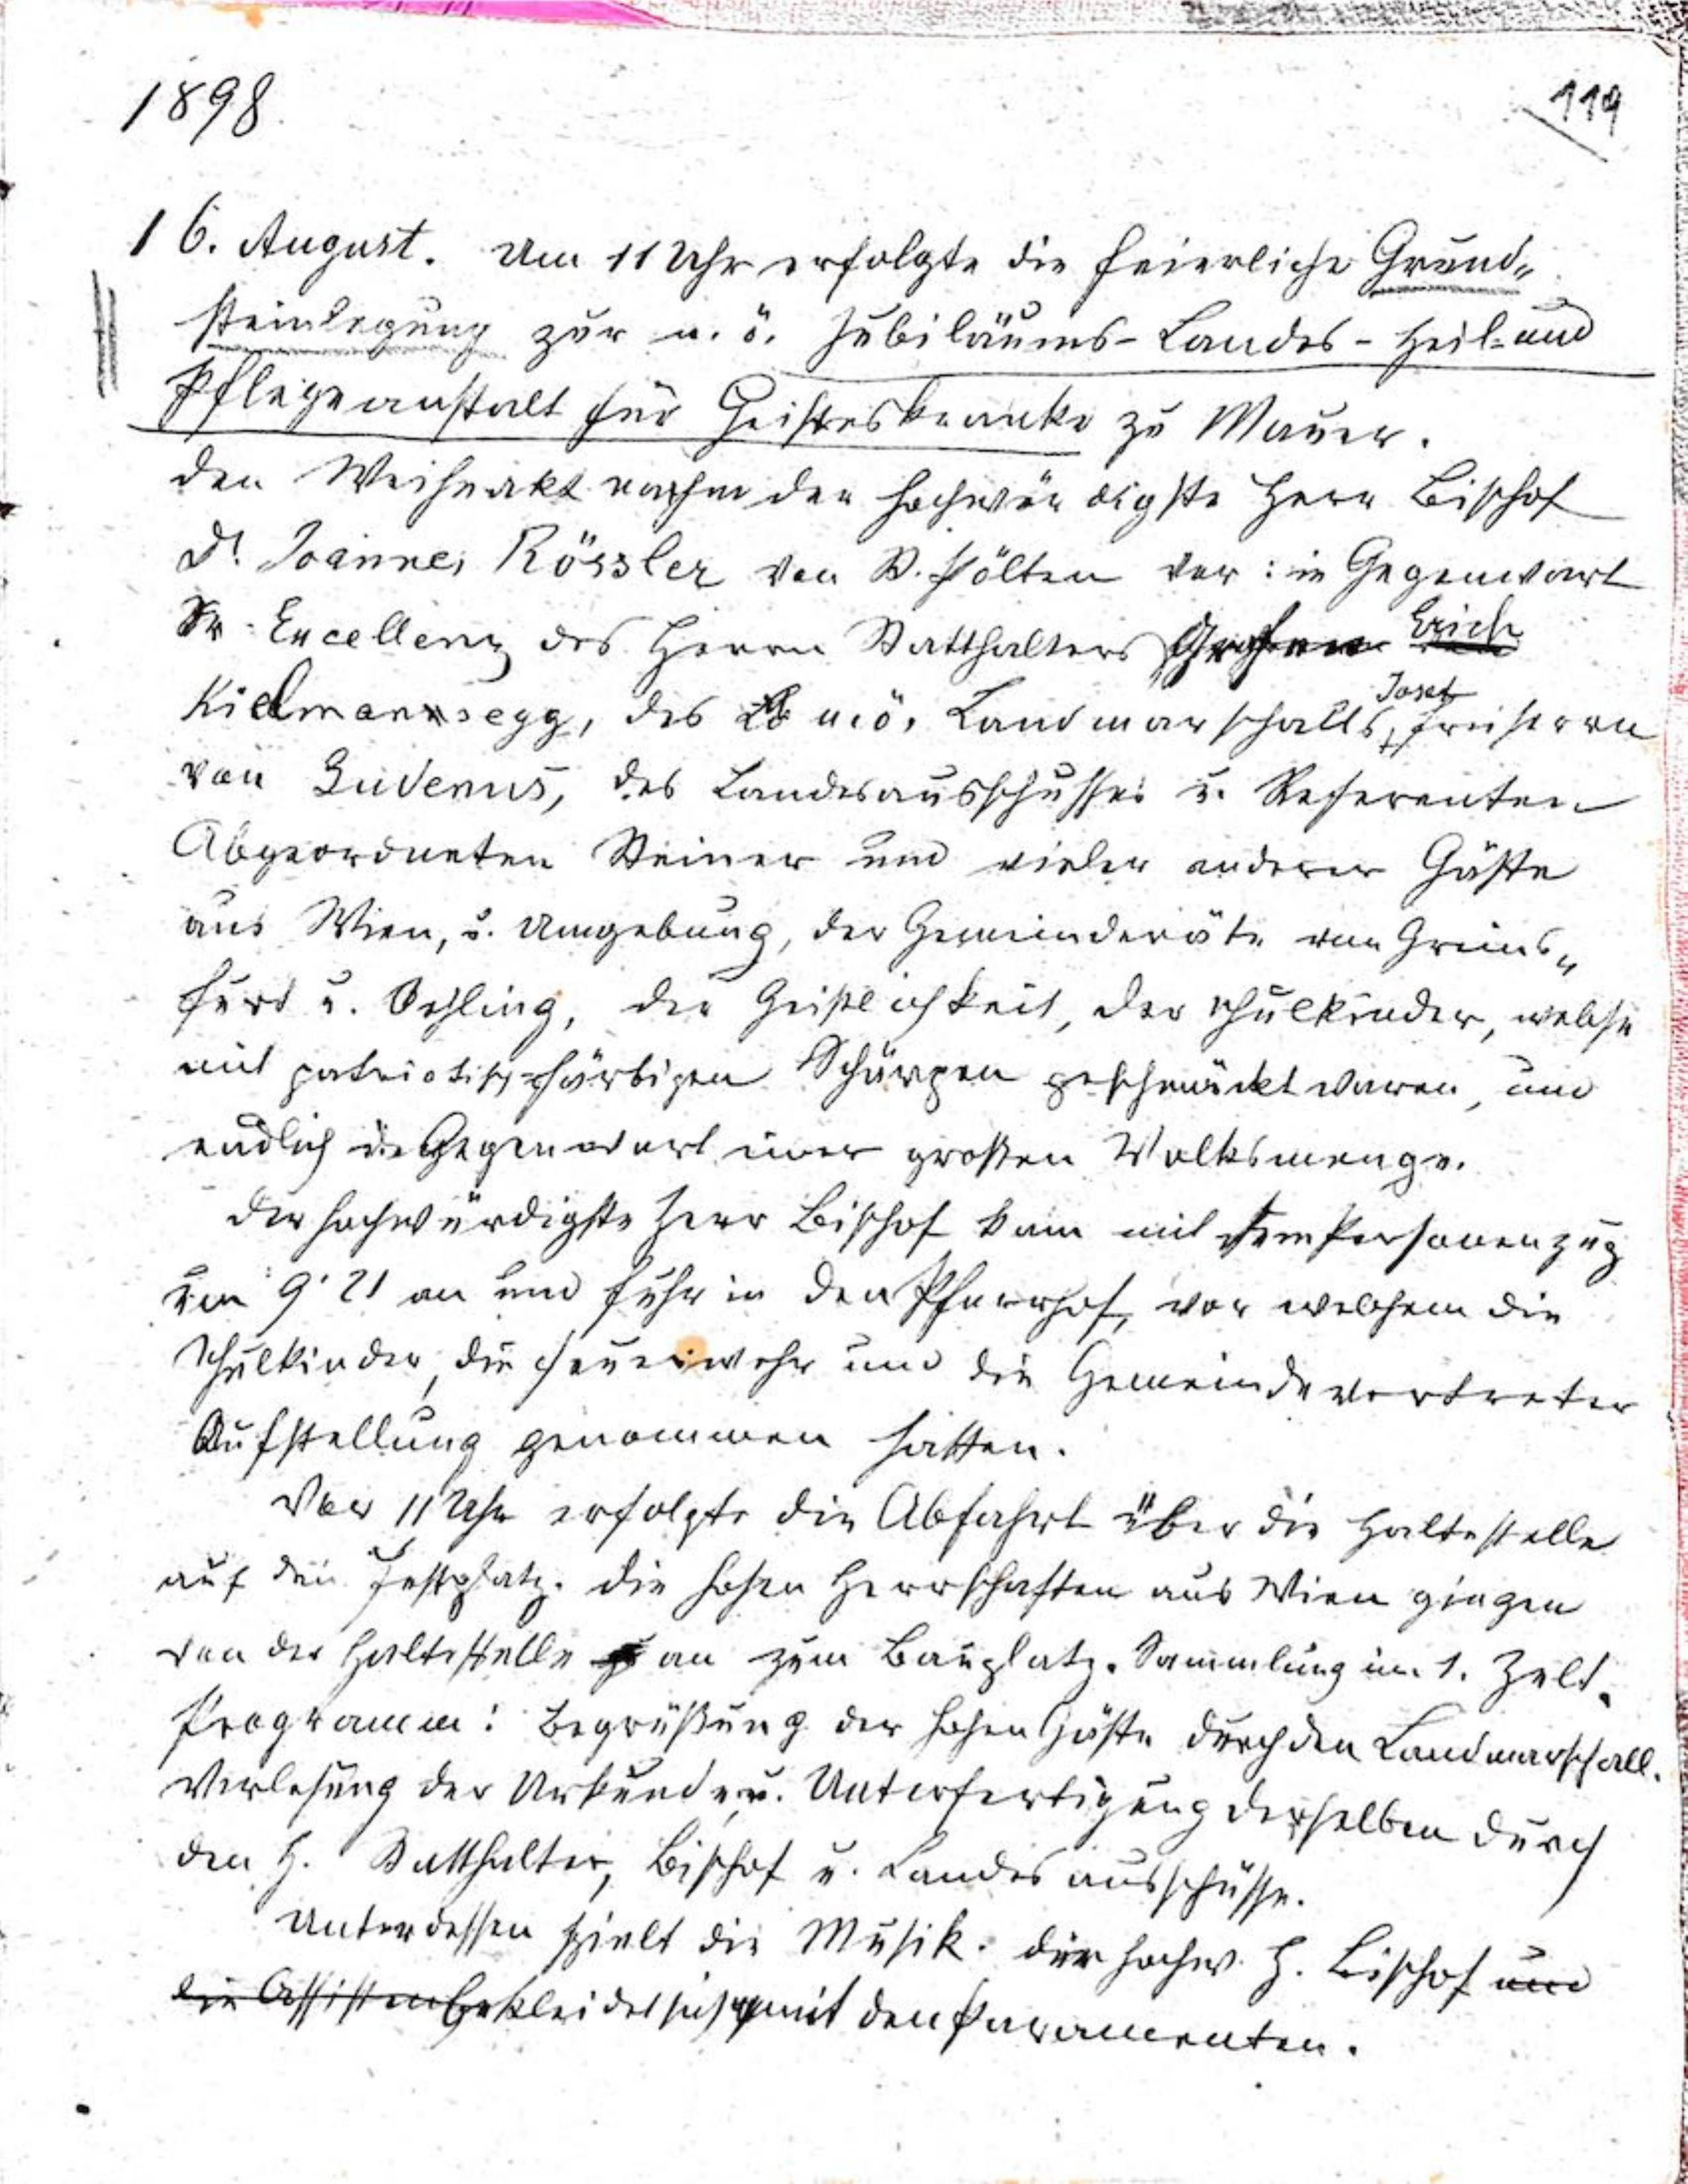 1898
119
16. August. Um 11 Uhr erfolgte die feierliche Grund„
steinlegung zur n. ö. Jubiläums-Landes-Heil- und
Pflegeanstalt für Geisteskranke zu Mauer.
Den Weiheakt nahm der hochwürdigste Herr Bischof
Dr Joannes Rössler von St. Pölten vor: in Gegenwart
Sr. Excellenz des Herrn Statthalters Grafen Erich
Kielmannsegg, des n.ö. Landmarschalls, Josef Freiherrn
von Gudenus, des Landesausschusses u. Referenten
Abgeordneten Steiner und vieler anderer Gäste
aus Wien, u. Umgebung, der Gemeinderäte von Greins„
furt u. Oehling, der Geistlichkeit, der Schulkinder, welche
mit patriotisch-färbigen Schärpen geschmückt waren, und
endlich in Gegenwart einer großen Volksmenge.
Der hochwürdigste Herr Bischof kam mit dem Personenzug
um 9·21 an und fuhr in den Pfarrhof, vor welchem die
Schulkinder, die Feuerwehr und die Gemeindevertreter
Aufstellung genommen hatten.
Vor 11 Uhr erfolgte die Abfahrt über die Haltestelle
auf den Festplatz. Die hohen Herrschaften aus Wien gingen
von der Haltestelle an zum Bauplatz. Sammlung im 1. Zelt.
Programm: Begrüßung der hohen Gäste durch den Landmarschall.
Verlesung der Urkunde u. Unterfertigung derselben durch
den H. Statthalter, Bischof u. Landesausschüsse.
Unterdessen spielt die Musik. Der hochw. H. Bischof und
die Assistenz bekleidet sich mit den Paramenten.